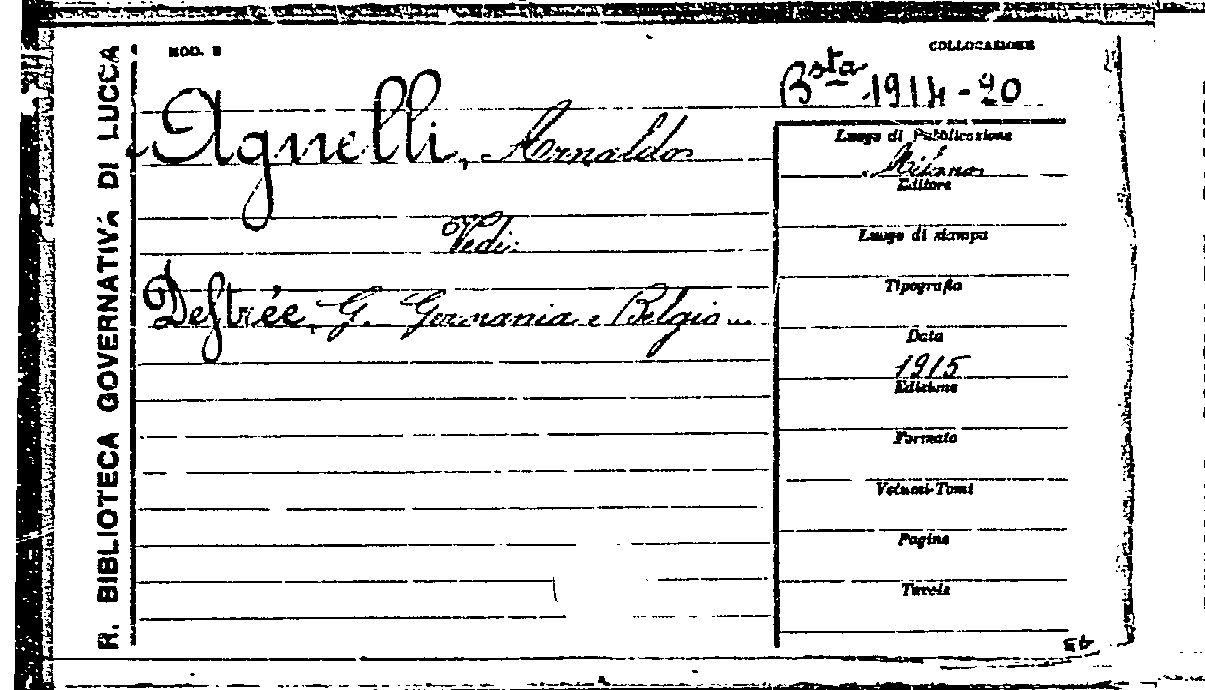 R. BIBLIOTECA GOVERNATIVA DI LUCCA
MOD. B
COLLOCAZIONE
Bsta 1914-20
Agnelli, Arnaldo
Vedi:
Destrée, G. Germania e Belgio...
Luogo di Pubblicazione
Milano
Editore
Luogo di stampa
Tipografia
Data
1915
Edizione
Formato
Volumi-Tomi
Pagine
Tavole